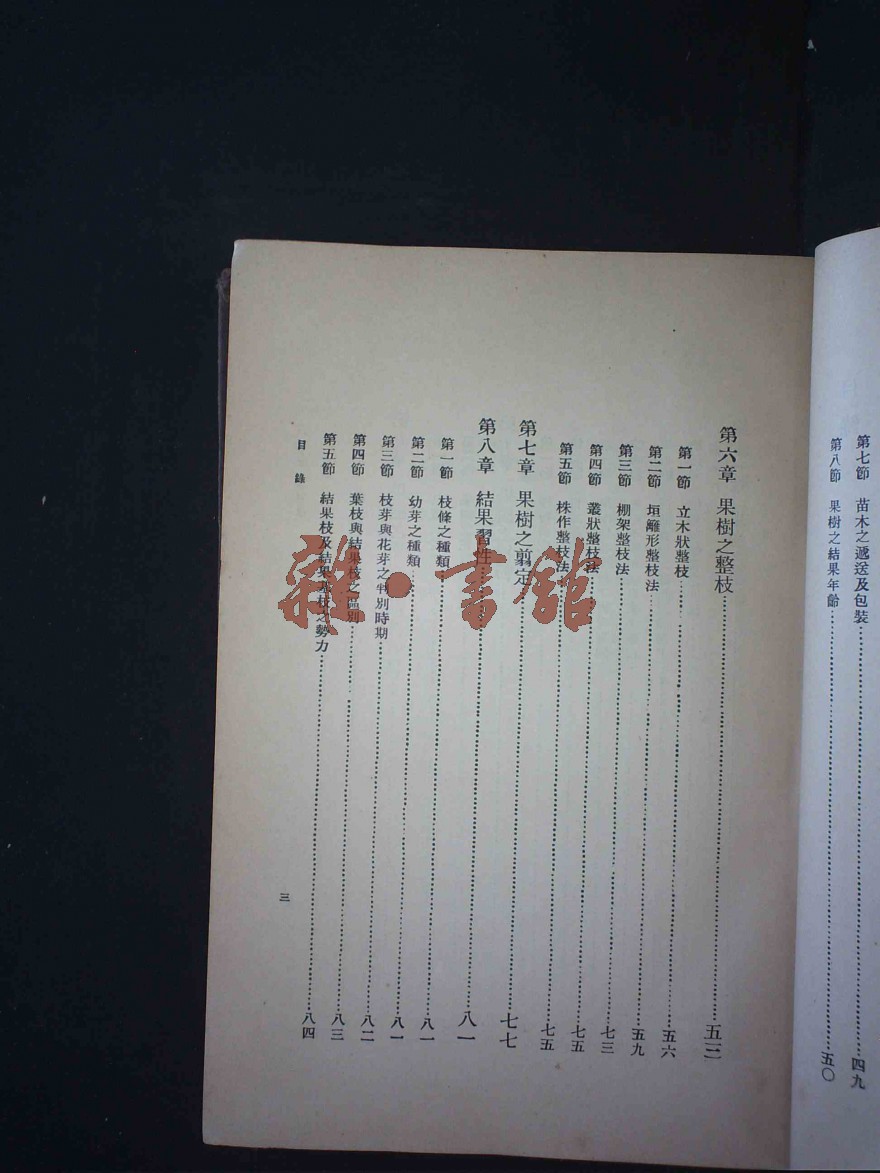 第七節　苗木之遞送及包裝……四九
第八節　果樹之結果年齡……五〇
第六章　果樹之整枝……五三
第一節　立木狀整枝……五六
第二節　垣籬形整枝法……五九
第三節　棚架整枝法……七三
第四節　叢狀整枝法……七五
第五節　株作整枝法……七五
第七章　果樹之剪定……七七
第八章　結果習性……八一
第一節　枝條之種類……八一
第二節　幼芽之種類……八一
第三節　枝芽與花芽之判別時期……八二
第四節　葉枝與結果枝之區別……八三
第五節　結果枝及結果基枝之勢力……八四
目錄
三
雜·書館